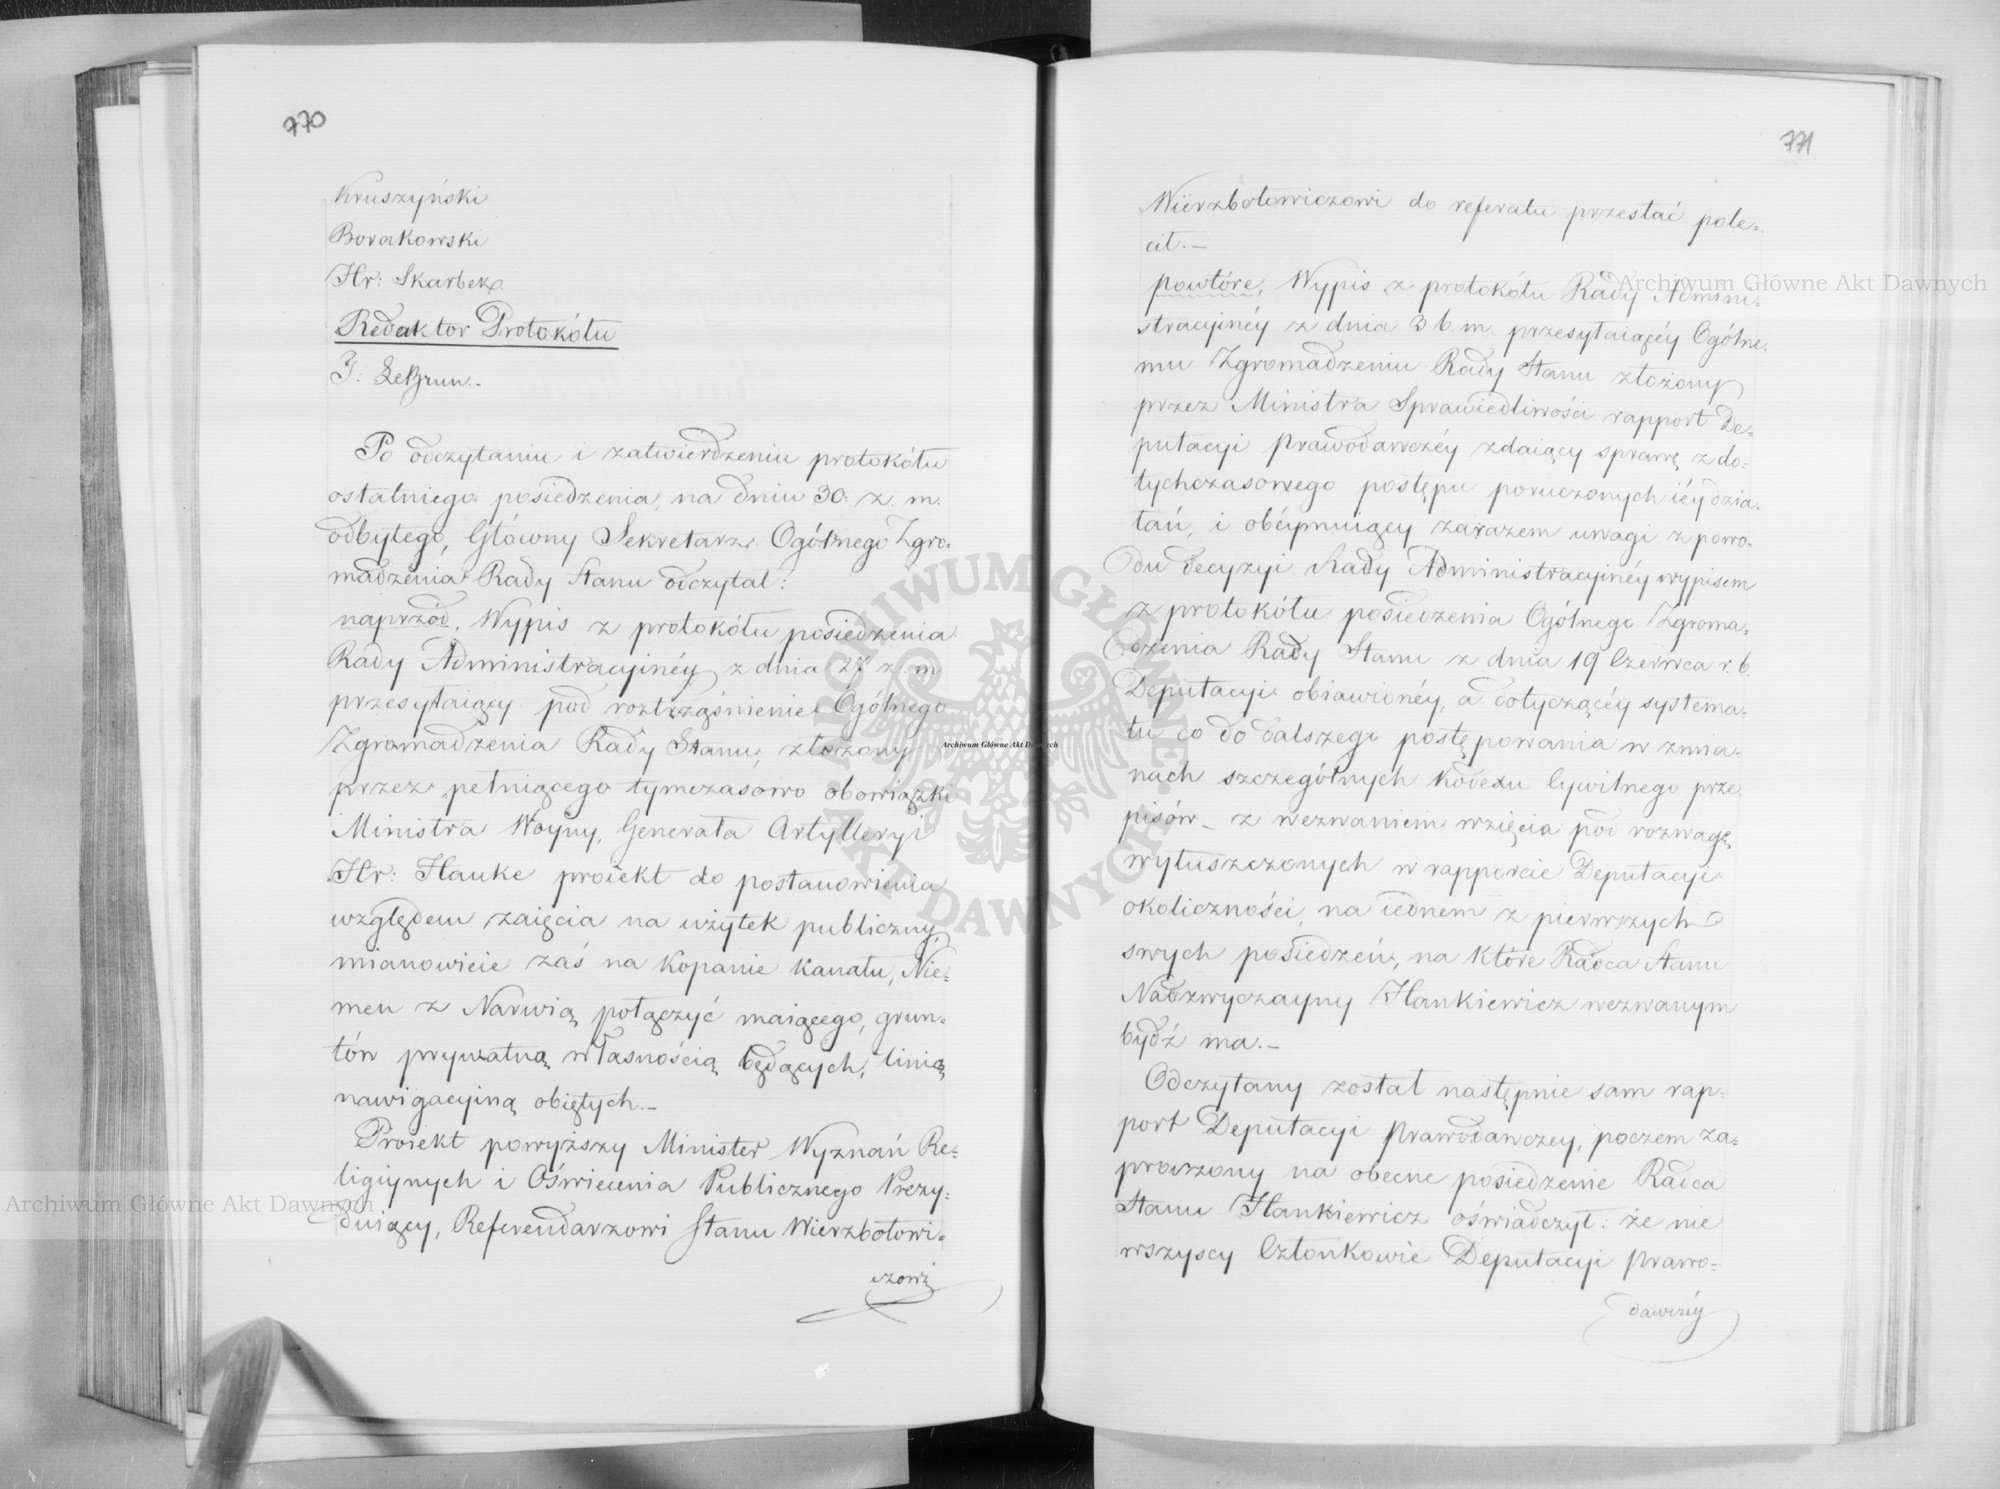 770
Kruszyński
Borakowski
Hr: Skarbek
Redaktor Protokółu
J: LeBrun.-
Po odczytaniu i zatwierdzeniu protokółu
ostatniego posiedzenia, na dniu 30. z. m.
odbytego, Główny Sekretarz Ogólnego Zgro-
madzenia Rady Stanu odczytał:
naprzód, Wypis z protokółu posiedzenia
Rady Administracyjnéy z dnia 27 z. m
przesyłaiący pod roztrząśnienie Ogólnego
Zgromadzenia Rady Stanu, złożony
przez pełniącego tymczasowo obowiązki
Ministra Woyny, Generała Artylleryi
Hr: Hauke proiekt do postanowienia
względem zaięcia na użytek publiczny,
mianowicie zaś na kopanie kanału, Nie-
men z Narwią połączyć maiącego, grun-
tów prywatną własnością będących, linią
nawigacyjną obiętych.-
Proiekt powyższy Minister Wyznań Re-
ligiynych i Oświecenia Publicznego Prezy-
duiący, Referendarzowi Stanu Wierzbołowi-
czowi
771
Wierzbołowiczowi do referatu przesłać pole-
cił.-
powtóre, Wypis z protokółu Rady Admini-
stracyinéy z dnia 3 b. m. przesyłaiącéy Ogólne-
mu Zgromadzeniu Rady Stanu złożony
przez Ministra Sprawiedliwości rapport De-
putacyi Prawodawczéy zdaiący sprawę z do-
tychczasowego postępu poruczonych iéy dzia-
łań, i obéymuiący zarazem uwagi z powo-
du decyzyi Rady Administracyinéy wypisem
z protokółu posiedzenia Ogólnego Zgroma-
dzenia Rady Stanu z dnia 19 Czerwca r. b.
Deputacyi obiawionéy, a dotyczącéy systema-
tu co do dalszego postępowania w zmia-
nach szczególnych Kodexu Cywilnego prze-
pisów - z wezwaniem wzięcia pod rozwagę
wyłuszczonych w rapporcie Deputacyi
okoliczności, na iednem z pierwszych
swych posiedzeń, na które Radca Stanu
Nadzwyczayny Hankiewicz wezwanym
bydź ma.-
Odczytany został następnie sam rap-
port Deputacyi Prawodawczey, poczem za-
proszony na obecne posiedzenie Radca
Stanu Hankiewicz oświadczył: że nie
wszyscy Członkowie Deputacyi Prawo-
dawczéy
Archiwum Główne Akt Dawnych
Archiwum Główne Akt Dawnych
Archiwum Główne Akt Dawnych
ARCHIWUM GŁÓWNE AKT DAWNYCH